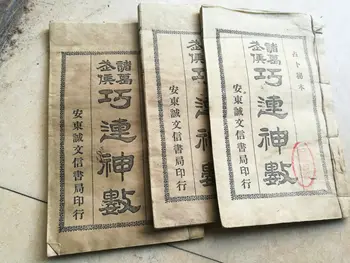 諸葛
武侯
巧連神數
安東誠文信書局印行
諸葛
武侯
巧連神數
安東誠文信書局印行
諸葛
武侯
巧連神數
安東誠文信書局印行